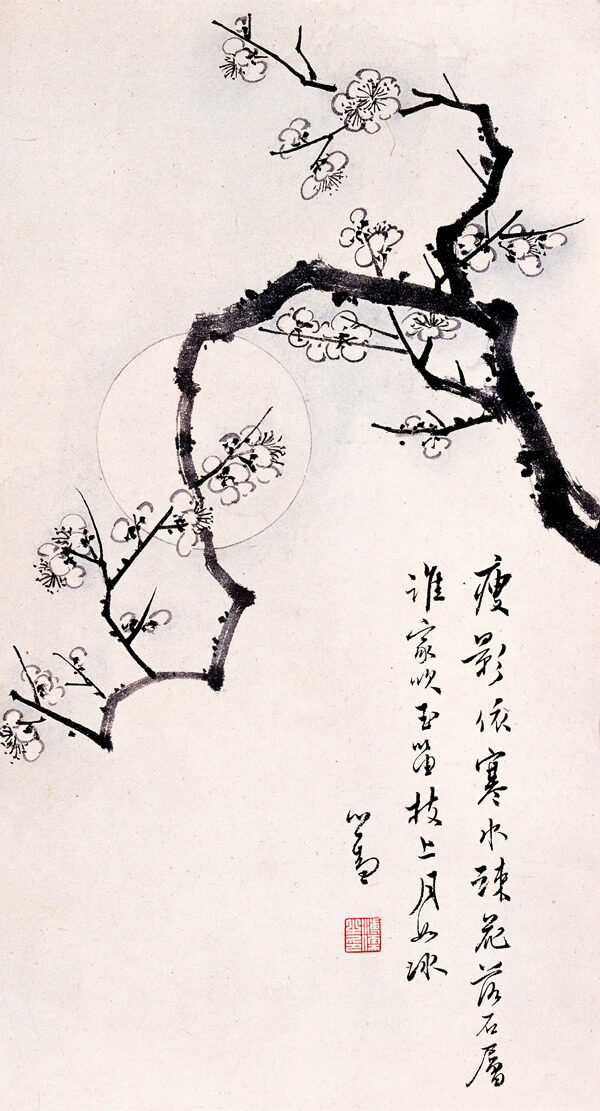 瘦影依寒水疎花落石層
誰家吹玉笛枝上月如冰
心畬
溥儒之印